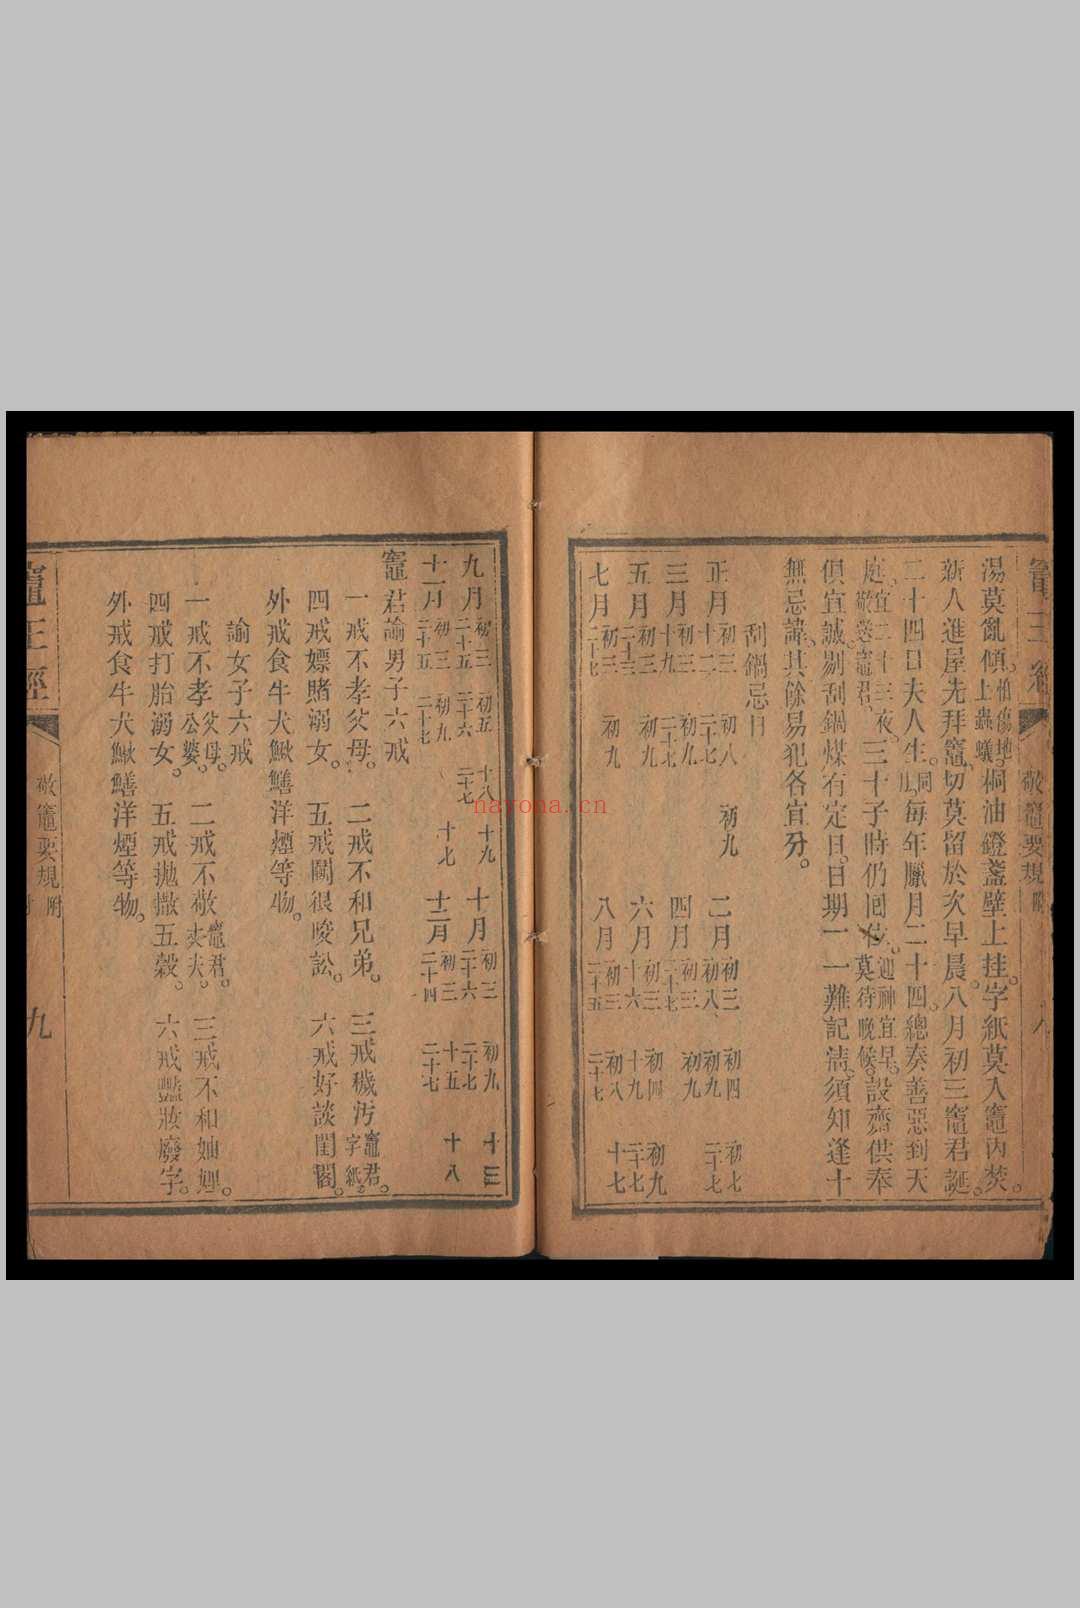 竈王經
敬竈要規 附
湯莫亂傾。怕傷地上蟲蟻。桐油鐙盞壁上挂。字紙莫入竈內焚。
新人進屋先拜竈。切莫留於次早晨。八月初三竈君誕。
二十四日夫人生。同上。每年臘月二十四。總奏善惡到天
庭。宜二十三夜。敬送竈君。三十子時仍回位。迎神宜早。莫待晚候。設齋供奉
俱宜誠。剔刮鍋煤有定日。日期一一難記淸。須知逢十
無忌諱。其餘易犯各宜分。
刮鍋忌日
正月 初三 十二 初八 二十七 初九 二月 初三 初八 初四 初九 初七 二十七
三月 初三 十九 初九 二十七 四月 初三 二十七 初九
五月 初三 二十三 初九 六月 初三 十六 初四 十九 初九 二十七
七月 初三 二十七 初九 八月 初三 二十五 初八 二十七 十七
九月 初三 二十五 初五 二十六 十八 二十七 十九 十月 初三 二十六 初九 二十七 十三
十一月 初三 二十五 初九 二十七 十七 十二月 初三 二十四 十五 二十七 十八
竈君諭男子六戒
一戒不孝父母。 二戒不和兄弟。 三戒穢汚竈君。字紙。
四戒嫖賭溺女。 五戒鬭很唆訟。 六戒好談閨閫。
外戒食牛犬鰍鱔洋煙等物。
諭女子六戒
一戒不孝父母。公婆。 二戒不敬竈君。丈夫。 三戒不和妯娌。
四戒打胎溺女。 五戒拋撒五穀。 六戒豔妝廢字。
外戒食牛犬鰍鱔洋煙等物。
竈王經
敬竈要規 附
九
nayona.cn